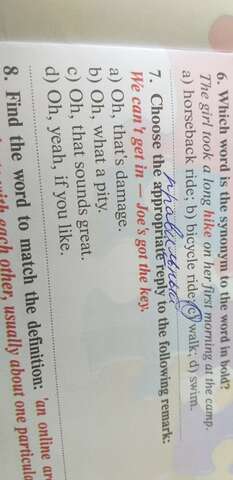 6. Which word is the synonym to the word in bold?
The girl took a long hike on her first morning at the camp.
a) horseback ride; b) bicycle ride; c) walk; d) swim.
правильный
7. Choose the appropriate reply to the following remark:
We can't get in – Joe's got the key.
a) Oh, that's damage.
b) Oh, what a pity.
c) Oh, that sounds great.
d) Oh, yeah, if you like.
8. Find the word to match the definition: 'an online
with each other, usually about one